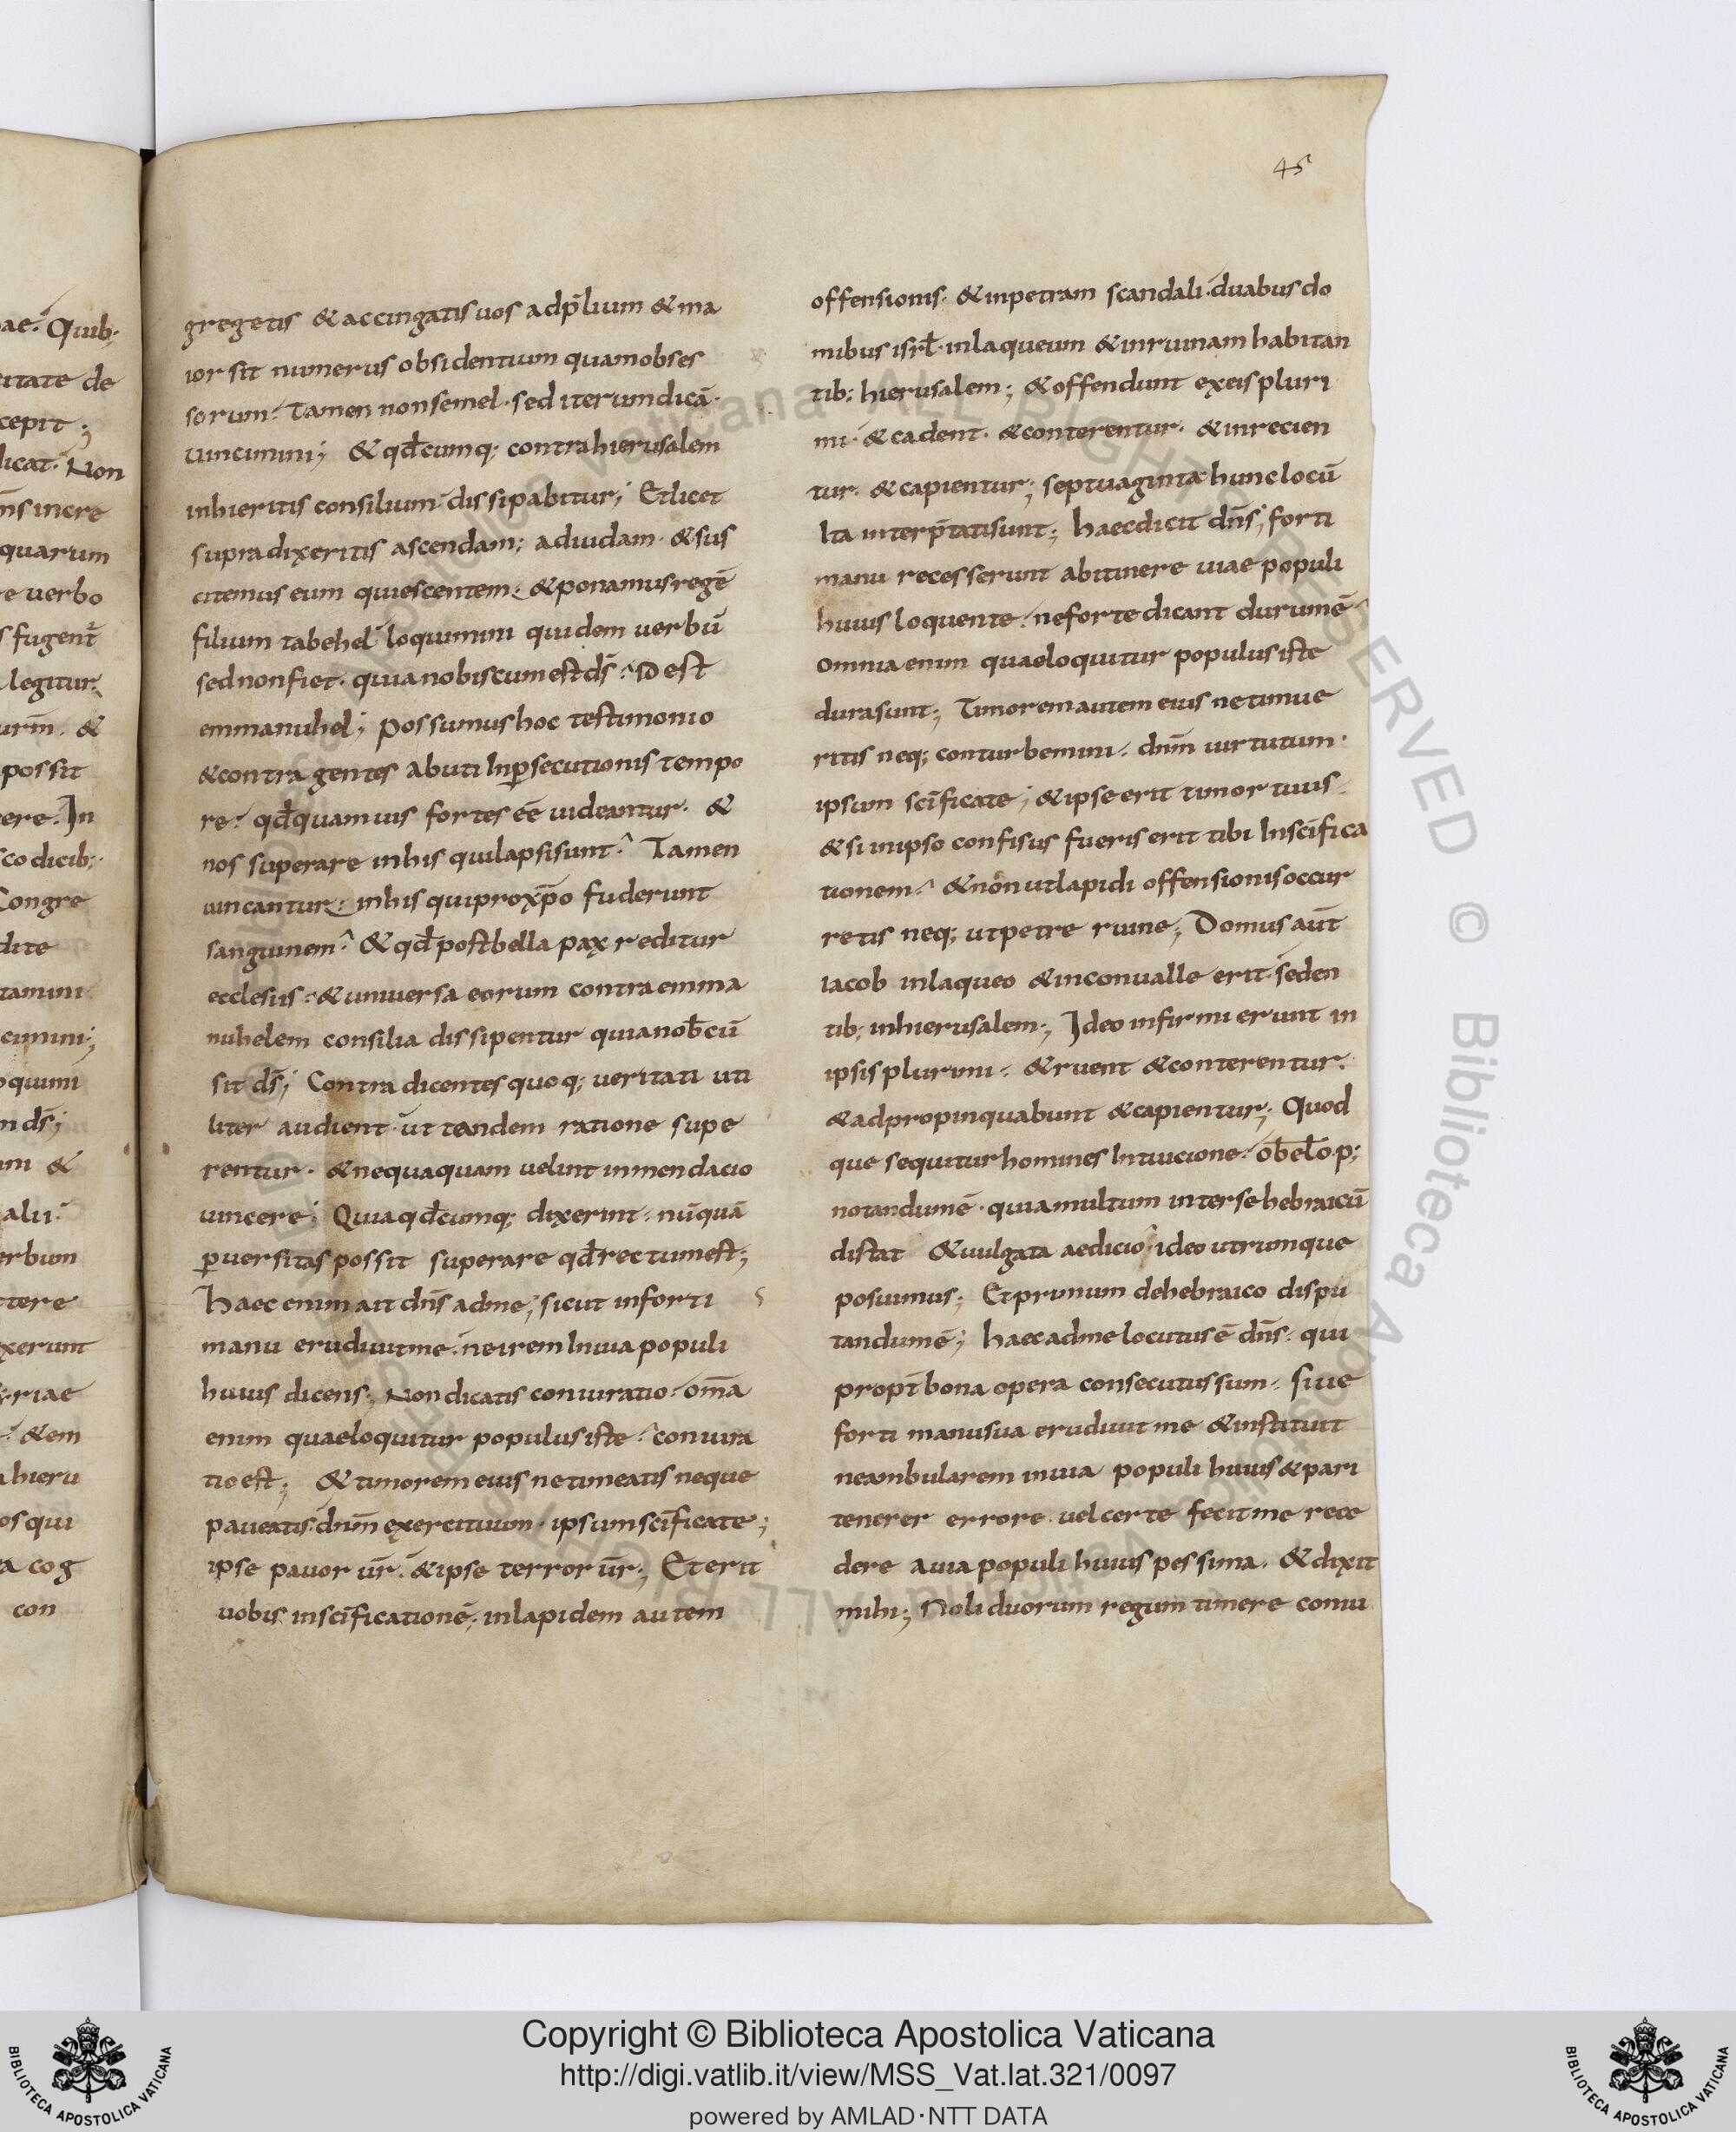 ae. Quib;
citate de
cepit;
licat. Non
n̄s incre
quarum
re uerbo
s fugent̄
legitur.
urm̄. &
possit
cere. In
sco dicib;.
Congre
dite
tamini
cimini;
oquimi
n ds̄;
ini &
alii.
erbum
tere
xerunt
riae
&em
ahieru
os qui
a cog
con
45
gregetis & accingatis uos adp̄lium & ma
ior sit numerus obsidentium quam obses
sorum. Tamen non semel. sed iterum dicā.
uincimini; & qđcumq; contra hierusalem
inhieritis consilium. dissipabitur; Et licet
supra dixeritis ascendam; ad iudam. & sus
citemus eum quiescentem. & ponamus regē
filium tabehel. loquimini quidem uerbū
sed non fiet. quia nobiscum est ds̄. id est
emmanuhel; possumus hoc testimonio
& contra gentes abuti In ꝑsecutionis tempo
re. qđ quamuis fortes eē uideantur. &
nos superare in his qui lapsi sunt. Tamen
uincantur. in his qui pro xp̄o fuderunt
sanguinem. & qđ post bella pax reditur
ecclesiis. & uniuersa eorum contra emma
nuhelem consilia dissipentur quia nob̄cū
sit ds̄; Contra dicentes quoq; ueritati uti
liter audient. ut tandem ratione supe
rentur. & nequaquam uelint in mendacio
uincere; Quia qđcumq; dixerint. nūquā
ꝑuersitas possit superare qđ rectum est;
Haec enim ait dn̄s ad me; sicut in forti
manu erudiuit me. ne irem In uia populi
huius dicens; Non dicatis coniuratio. om̄a
enim quae loquitur populus iste. coniura
tio est; & timorem eius ne timeatis neque
paueatis. dnm̄ exercituum. ipsum scīficate;
ipse pauor ur̄. & ipse terror ur̄; Et erit
uobis in scīficationē; in lapidem autem
offensionis. & in petram scandali. duabus do
mibus isrl̄. in laqueum & in ruinam habitan
tib; hierusalem; & offendunt ex eis pluri
mi. & cadent. & conterentur. & inrecien
tur. & capientur; septuaginta hunc locū
Ita interp̄tati sunt; haec dicit dn̄s; forti
manu recesserunt ab itinere uiae populi
huius loquente. ne forte dicant durum ē
omnia enim quae loquitur populus iste
dura sunt; Timorem autem eius ne timue
ritis neq; conturbemini. dnm̄ uirtutum.
ipsum scīficate; & ipse erit timor tuus.
& si in ipso confisus fueris erit tibi In scīfica
tionem. & non ut lapidi offensionis occur
retis neq; ut petre ruine; Domus aūt
iacob in laqueo & in conualle erit. seden
tib; in hierusalem; Ideo infirmi erunt in
ipsis plurimi. & ruent & conterentur.
& adpropinquabunt & capientur; Quod
que sequitur homines In tuicione. ob̄el̄o.p;
notandum ē. quia multum inter se hebraicū
distat & uulgata aedicio. ideo utrumque
posuimus; Et primum de hebraico dispu
tandum ē; haec ad me locutus ē dn̄s. qui
propt̄ bona opera consecutus sum. siue
forti manu sua erudiuit me & instituit
ne ambularem in uia populi huius & pari
tenerer errore. uel certe fecit me rece
dere a uia populi huius pessima. & dixit
mihi; Noli duorum regum timere coniu
ALL RIGHTS RESERVED © Biblioteca Apostolica Vaticana
BIBLIOTECA APOSTOLICA VATICANA
Copyright © Biblioteca Apostolica Vaticana
http://digi.vatlib.it/view/MSS_Vat.lat.321/0097
powered by AMLAD·NTT DATA
BIBLIOTECA APOSTOLICA VATICANA